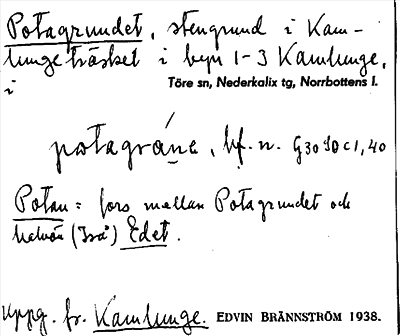 Potagrundet, stengrund i Kam-
lungeträsket i byn 1-3 Kamlunge,
i Töre sn, Nederkalix tg, Norrbottens l.
potagráne, bf. n. G30 SO c 1, 40
Potan = fors mellan Potagrundet och
halvön (Två) Edet.
Uppg. fr. Kamlunge. EDVIN BRÄNNSTRÖM 1938.